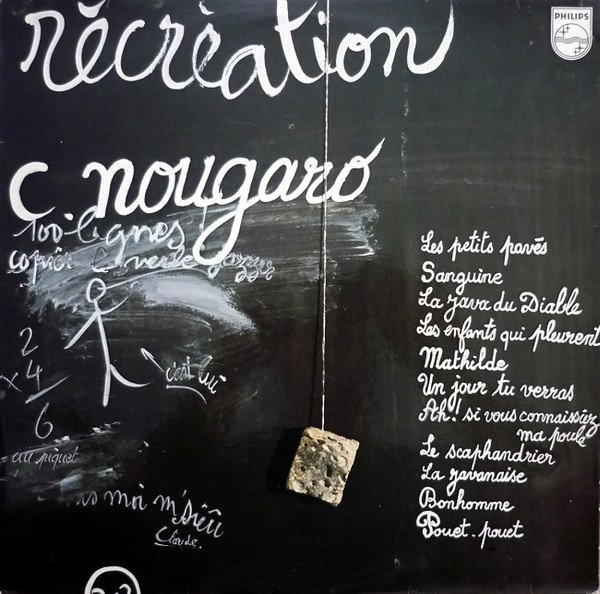 récréation
PHILIPS
C. nougaro
100 lignes
copier le verbe
c'est lui
2
x 4
6
au piquet
pas moi m'sieu
Claude.
Les petits pavés
Sanguine
La java du Diable
Les enfants qui pleurent
Mathilde
Un jour tu verras
Ah! si vous connaissiez
ma poule
Le scaphandrier
La javanaise
Bonhomme
Pouet-pouet